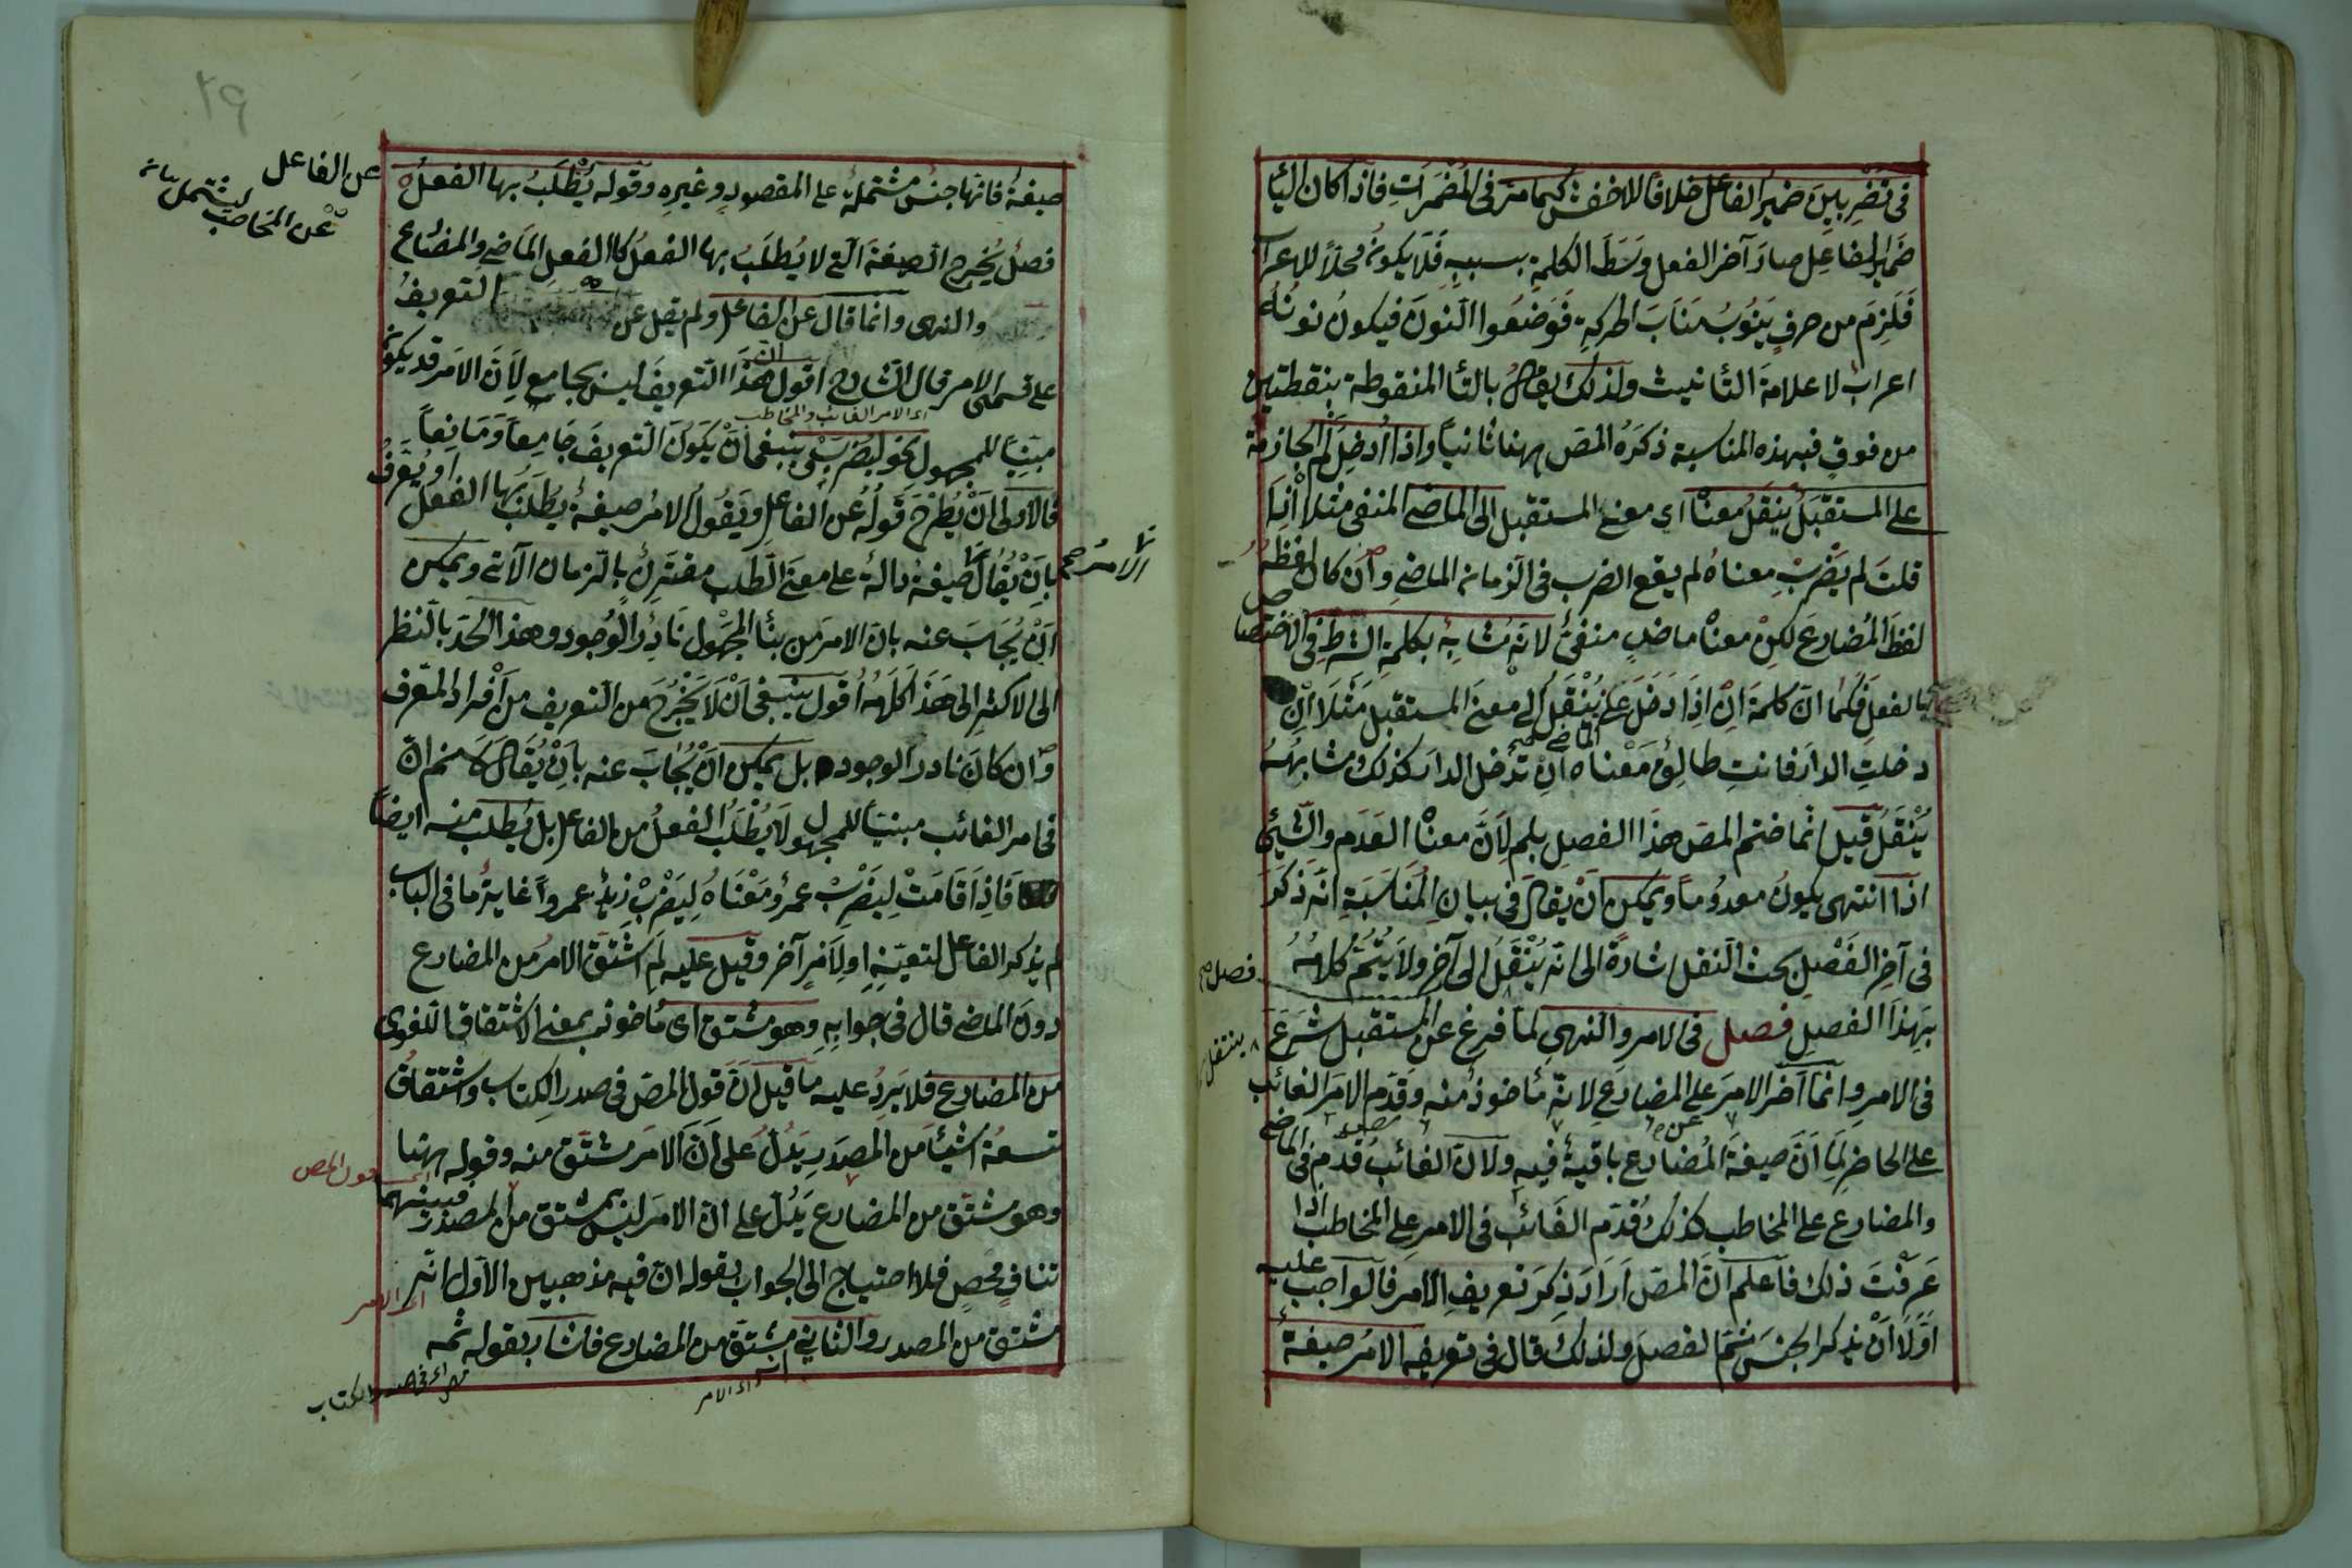 في تضربين ضمير الفاعل خلافا للاخفش كما مر في المضمرات فاذا كان اليا
ضمير الفاعل صار آخر الفعل وسط الكلمة بسببه فلا يكون محلا للاعراب
فلزم من حرف ينوب مناب الحركة فوضعوا النون فيكون نونه
اعراب لا علامة التأنيث ولذلك يقال بالتا المنقوطة بنقطتين
من فوق فبهذه المناسبة ذكره المص ههنا ثانيا واذا أدخل لم الجازمة
على المستقبل ينقل معناه اي معنى المستقبل الى الماضي المنفي مثلا اذا
قلت لم يضرب معناه لم يقع الضرب في الزمان الماضي وان كان لفظه
لفظ المضارع لكن معناه ماض منفي لانه مشابه بكلمة الشرط في الاختصاص
بالفعل فكما ان كلمة ان اذا دخل على ينقل الى معنى المستقبل مثلا ان
الماضي صح
دخلت الدار فانت طالق معناه ان تدخل الدار كذلك مشابهه
ينقل قيل انما ختم المص هذا الفصل بلم لان معناه العدم والشيئ
اذا انتهى يكون معدوما ويمكن ان يقال في بيان المناسبة انه ذكر
في آخر الفصل بحث النقل اشارة الى انه ينقل الى آخر ولا يتم كلامه
فصل صح
بهذا الفصل فصل في الامر والنهي لما فرغ عن المستقبل شرع
ينتقل
في الامر وانما آخر الامر على المضارع لانه مأخوذ منه وقدم الامر الغائب
على الحاضر لما ان صيغة المضارع باقية فيه ولان الغائب قدم في الماضي
والمضارع على المخاطب كذلك قدم الغائب في الامر على المخاطب اذا
عرفت ذلك فاعلم ان المص اراد ذكر تعريف الامر فالواجب عليه
اولا ان يذكر الجنس ثم الفصل ولذلك قال في تعريفه الامر صيغة
٢٩
صيغة فانها جنس مشتملة على المقصود وغيره وقوله يطلب بها الفعل
عن الفاعل
عن المخاطب ليشتمل
فصل يخرج الصيغة التي لا يطلب بها الفعل كالفعل الماضي والمضارع
والنهي وانما قال عن الفاعل ولم يقل عن التعريف
على قسمي الامر قال الشارح اقول هذا التعريف ليس بجامع لان الامر قد يكون
اى الامر الغائب والمخاطب
مبنيا للمجهول نحو ليضرب ينبغي ان يكون التعريف جامعا ومانعا
فالاولى ان يطرح قوله عن الفاعل ويقول الامر صيغة يطلب بها الفعل او يعرف
بان يقال صيغة دالة على معنى الطلب مقترن بالزمان الآتي ويمكن
الامر صح
ان يجاب عنه بان الامر من بناء المجهول نادر الوجود وهذا الحد بالنظر
الى الاكثر الى هذا كلامه اقول ينبغي ان لا يخرج من التعريف من أفراد المعرف
وان كان نادر الوجود بل يمكن ان يجاب عنه بان يقال لا نم ان
في امر الغائب مبنيا للمجهول لا يطلب الفعل من الفاعل بل يطلب منه ايضا
فاذا قامت ليضرب عمرو معناه ليضرب زيد عمروا غاية ما في الباب
لم يذكر الفاعل لتعينه او لامر آخر وقيل عليه لم اشتق الامر من المضارع
دون الماضي قال في جوابه وهو مشتق اى مأخوذ بمعنى الاشتقاق اللغوى
من المضارع فلا يرد عليه ما قيل ان قول المص في صدر الكتاب واشتقاق
تسعة اشيئا من المصدر يدل على ان الامر مشتق منه وقوله ههنا
وهو مشتق من المضارع يدل على ان الامر ليس بمشتق من المصدر فبينهما
تناف محض فلا احتياج الى الجواب بقوله ان فيه مذهبين الاول انه
مشتق من المصدر والثاني مشتق من المضارع فاشار بقوله ثمه
اى في صدر الكتاب
اى الامر